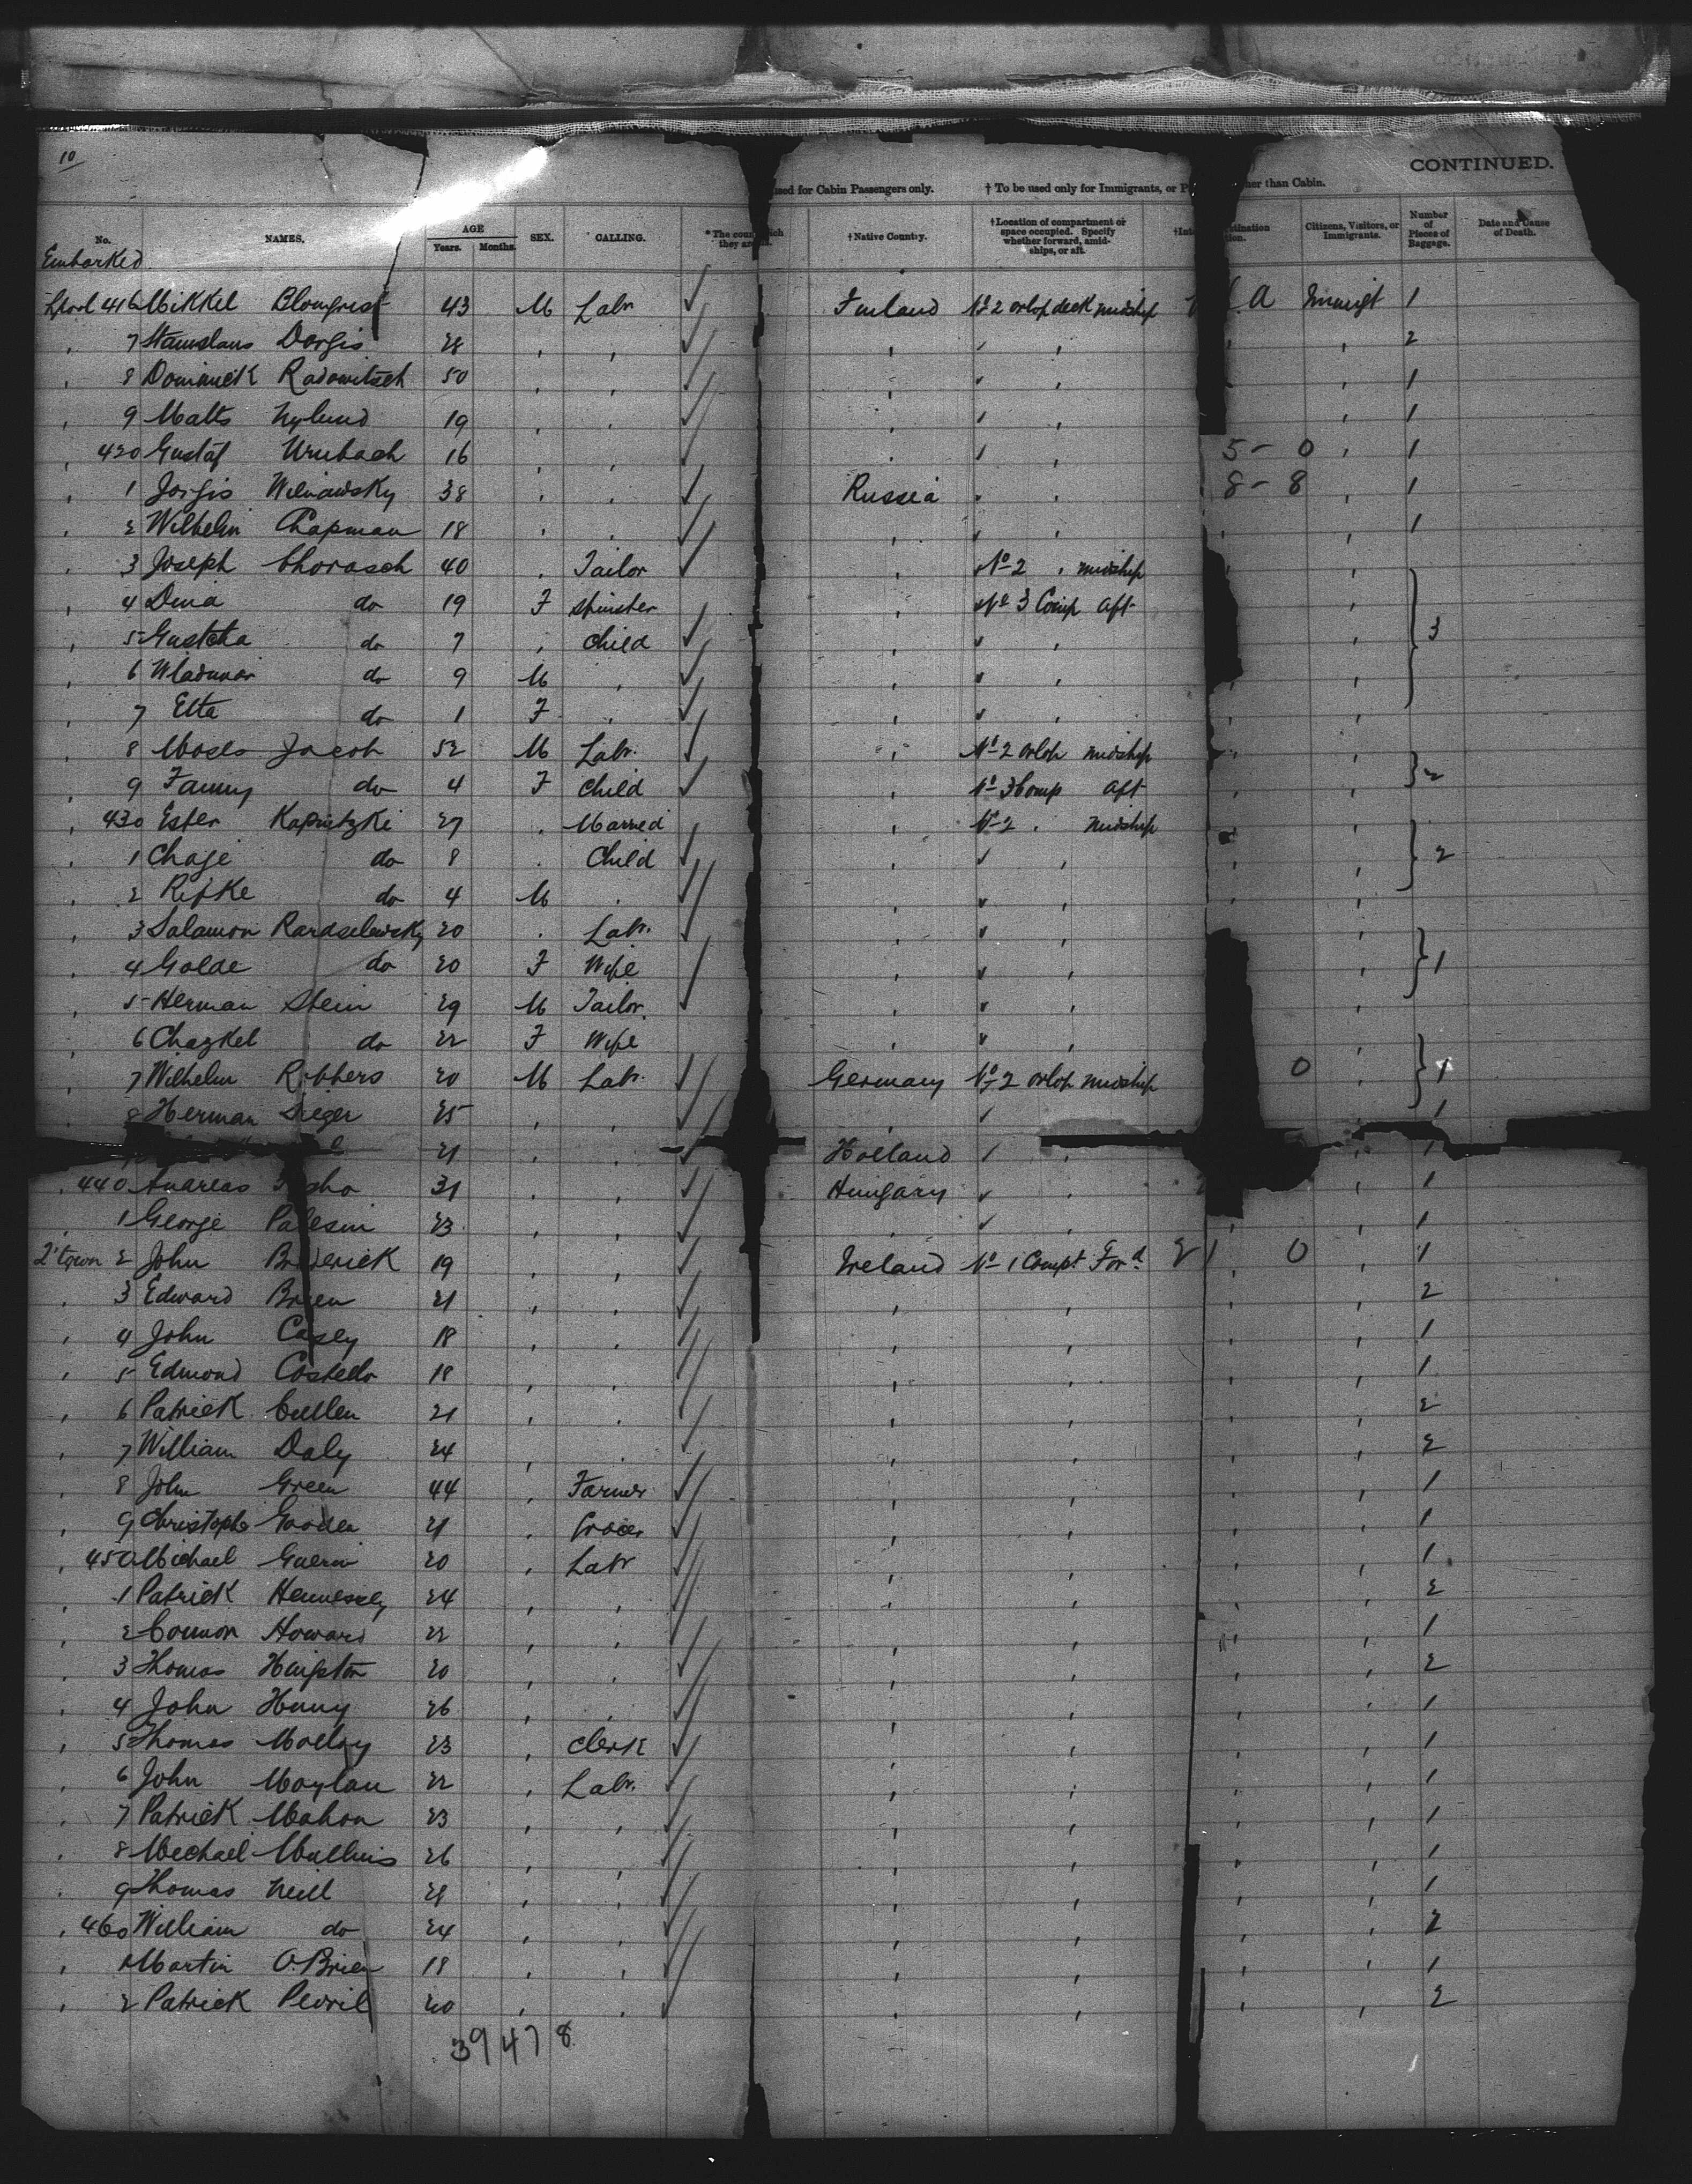 10
CONTINUED.
used for Cabin Passengers only. † To be used only for Immigrants, or her than Cabin.
No. NAMES. AGE Years. Months. SEX. CALLING. * The coun ich they are †Native Country. †Location of compartment or space occupied. Specify whether forward, amidships, or aft. stination tion. Citizens, Visitors, or Immigrants. Number of Pieces of Baggage. Date and Cause of Death.
Embarked
L'pool 416 Mikkel Blomqvist 43 M Labr Finland No 2 orlop deck midship A Immigt 1
7 Stanislaus Dorgis 28 2
8 Dominick Radowitsch 50 1
9 Matts Nylund 19 1
420 Gustaf 16 5- 0 1
1 Jorgis 38 Russia 8- 8 1
2 Wilhelm Chapman 18 1
3 Joseph Chorasch 40 Tailor No 2 midship
4 Dina do 19 F Spinster No 3 Comp aft
5 do 7 Child 3
6 do 9 M
7 Etta do 1 F
8 Moses Jacob 52 M Labr. No 2 orlop midship
9 Fanny do 4 F Child No 3 Comp aft 2
430 Ester Kaputzki 27 Married No 2 midship
1 Chaje do 8 Child 2
2 Rifke do 4 M
3 Salamon 20 Labr.
4 Golde do 20 F Wife 1
5 Herman Stein 29 M Tailor
6 Chazkel do 22 F Wife
7 Wilhelm Robbers 20 M Labr. Germany No 2 orlop midship 0 1
8 Herman Sieger 25 1
21 Holland 1
440 Andreas 31 Hungary 1
1 George 23 1
Q'town 2 John Broderick 19 Ireland No 1 Compt Ford 21 0 1
3 Edward Brien 21 2
4 John Casey 18 1
5 Edmond Costello 18 1
6 Patrick Cullen 21 2
7 William Daly 24 2
8 John Green 44 Farmer 1
9 Christophr 21 Grocer 1
450 Michael Guerin 20 Labr 1
1 Patrick Hennessey 24 2
2 Connor Howard 22 1
3 Thomas 20 2
4 John 26 1
5 Thomas Molloy 23 Clerk 1
6 John Moylan 22 Labr. 1
7 Patrick Mahon 23 1
8 Michael Mullins 26 1
9 Thomas Neill 1
460 William do 24 2
1 Martin O'Brien 18 1
2 Patrick 20 2
39478